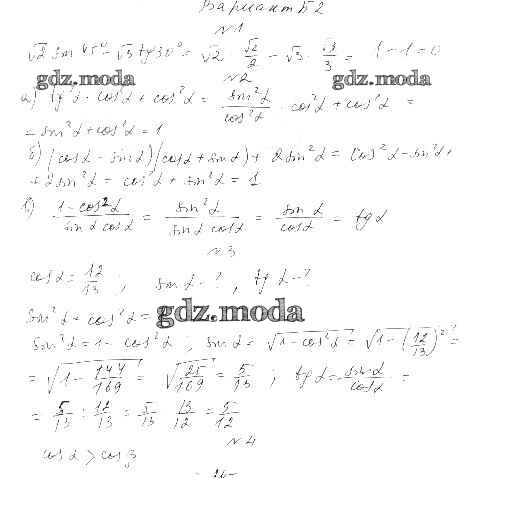 Вариант Б2
№1
√2 sin 45° - √3 tg 30° = √2 · √2/2 - √3 · √3/3 = 1 - 1 = 0
gdz.moda gdz.moda
№2
а) tg²α · cos²α + cos²α = sin²α/cos²α · cos²α + cos²α =
= sin²α + cos²α = 1
б) (cos α - sin α)(cos α + sin α) + 2 sin²α = cos²α - sin²α +
+ 2 sin²α = cos²α + sin²α = 1
в) 1 - cos²α / sin α cos α = sin²α / sin α cos α = sin α / cos α = tg α
№3
cos α = 12/13 ; sin α - ? , tg α - ?
sin²α + cos²α =
gdz.moda
sin²α = 1 - cos²α ; sin α = √1 - cos²α = √1 - (12/13)² =
= √1 - 144/169 = √25/169 = 5/13 ; tg α = sin α / cos α =
= 5/13 : 12/13 = 5/13 · 13/12 = 5/12
№4
cos α > cos β